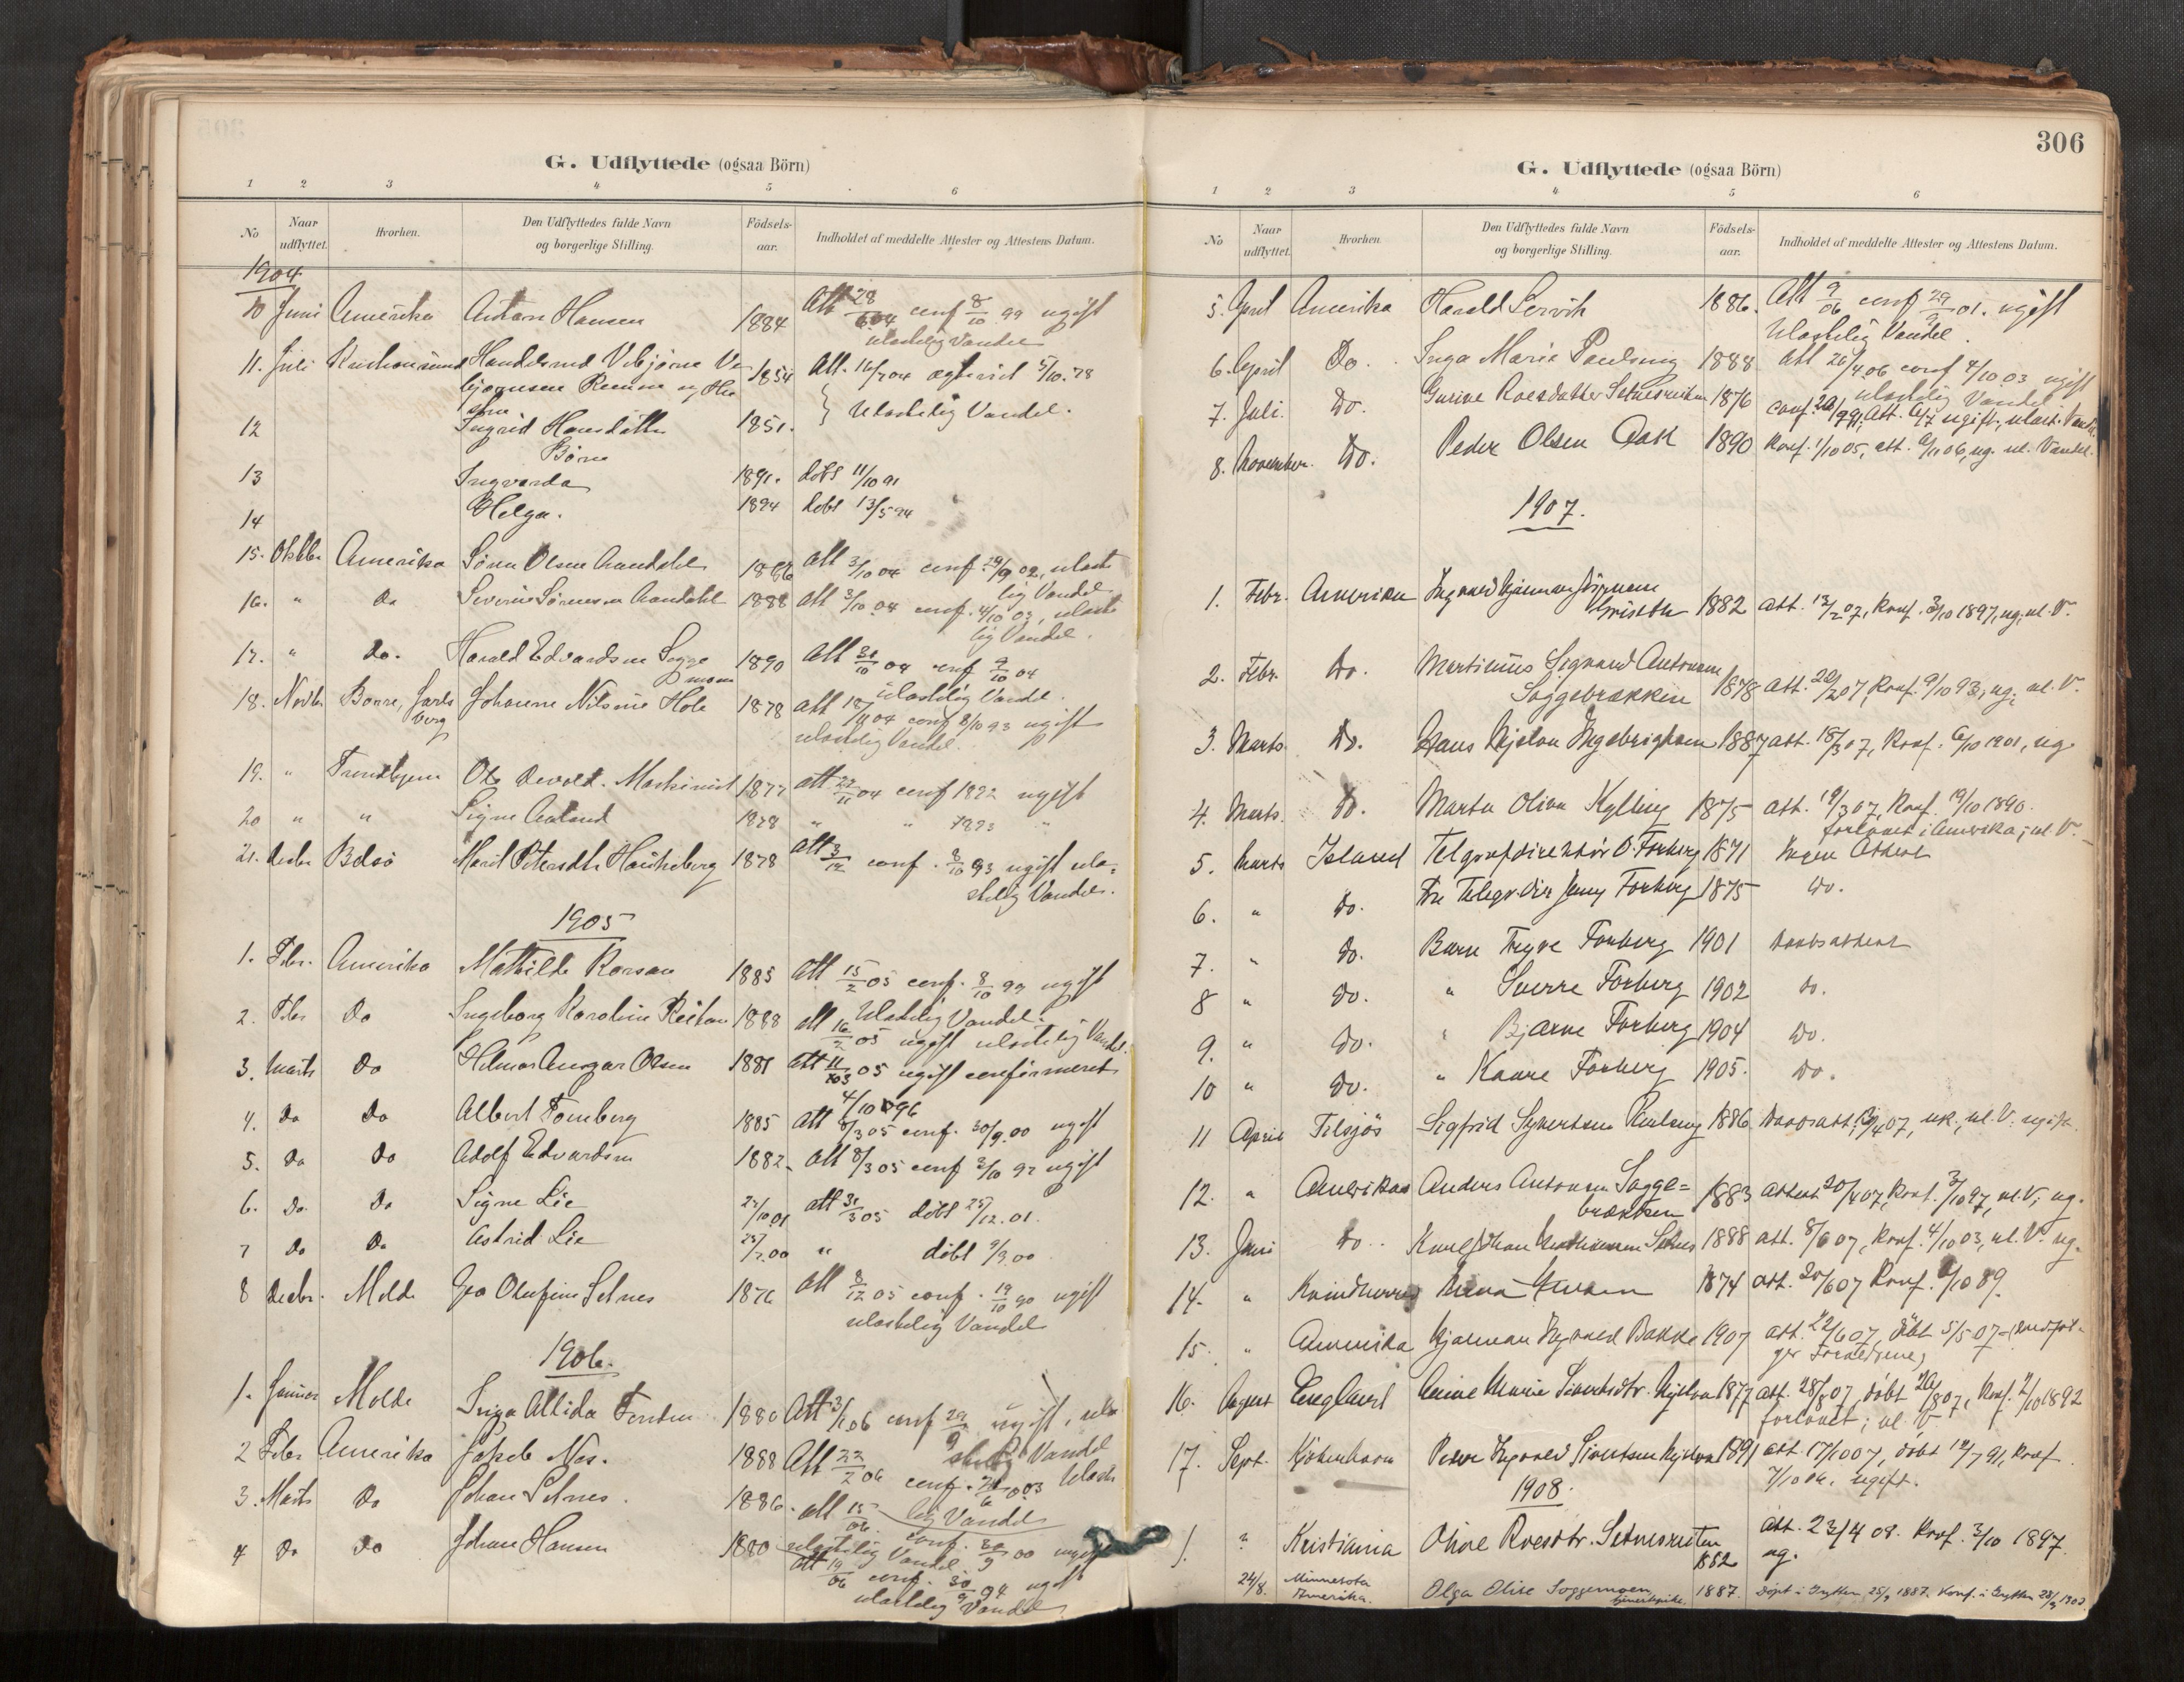 G. Udflyttede (ogsaa Börn)
1 2 3 4 5 6
No Naar udflyttet. Hvorhen. Den Udflyttedes fulde Navn og borgerlige Stilling. Födsels-aar. Indholdet af meddelte Attester og Attestens Datum.
1904
10 Juni Amerika Anton Hansen 1884 Att 28/6 04 conf 8/10 99 ugift
ulastelig Vandel
11. Juli Kristiansund 1854 Att. 16/7 04 5/10.78
Ulastelig Vandel.
12 Ingrid Hansdatter 1851.
Børn
13 Ingvarda 1891. døbt 11/10 91
14 Helga. 1894 døbt 13/5 94
15. Oktbr Amerika Søren Olsen Aandahl 1886 att 3/10 04 conf. 29/9 02, ulaste
lig Vandel
16. " Do Severin Sørensen Aandahl 1888 att 3/10 04 conf. 4/10 03, ulaste
lig Vandel.
17. " Do. Harald Edvardsen Sogge
moen 1890 Att 31/10 04 conf 9/10 04
ulastelig Vandel.
18. Novbr Borre, Jarls
berg Johanne Nilsine Hole 1878 att 18/11 04 conf 8/10 93 ugift
ulastelig Vandel.
19. " Trondhjem Ole Devold. Maskinist 1877 att 22/11 04 conf 1892 ugift
20 " " Signe 1878 " " 1893 "
21. Decbr Bolsø Marit Petersdtr Haukeberg 1878 Att 3/12 conf. 8/10 93 ugift ula=
stelig Vandel.
1905
1. Febr. Amerika Mathilde 1885 Att 15/2 05 conf. 8/10 99 ugift
Ulastelig Vandel.
2. Febr Do Ingeborg Karoline Reitan 1888 att 16/2 05 ugift ulastelig Vandel.
3. Marts Do Hilmar Ansgar Olsen 1881 att 11/3 05 ugift confirmeret
4/10 96
4. Do Do Albert Tomberg 1885 Att 8/3 05 conf. 30/9.00 ugift
5. Do Do Adolf Edvardsen 1882. Att 8/3 05 conf 3/10 97 ugift
6. Do Do Signe Lie 27/10 01 att 31/3 05 døbt 25/12.01.
7 Do Do Astrid Lie 25/2.00 " døbt 9/3 00
8 Decbr. Molde Olufine Setnes 1876 Att 8/12 05 conf. 19/10 90 ugift
ulastelig Vandel
1906.
1. Januar Molde Inga Alida 1880 Att 3/1 06 conf 29/9 ugift, ula
stelig Vandel
2 Febr Amerika Jakob Nes. 1888 Att 22/2 06 conf. 03 Ulaste
lig Vandel
3. Marts Do Johan Setnes. 1886. att 15/06 conf. 30/9 00 ugift
ulastelig Vandel
4 Do Do Johan Hansen 1880 att 19/06 conf. 30/9 94 ugift
ulastelig Vandel
306
G. Udflyttede (ogsaa Börn)
1 2 3 4 5 6
No Naar udflyttet. Hvorhen. Den Udflyttedes fulde Navn og borgerlige Stilling. Födsels-aar. Indholdet af meddelte Attester og Attestens Datum.
5. April Amerika Harald Servik 1886. Att 9/06 conf 29/9 01. ugift
Ulastelig Vandel.
6. April Do. Inga Marie Paulsen 1888 att 26/4 06 conf 4/10 03 ugift
ulastelig Vandel
7. Juli Do. Gurine Roesdatter Setnesreiten 1876 conf. 20/9 91, att. 6/7 ugift, ulast. Vandel.
8. November. Do. Peder Olsen Aak 1890 Konf. 1/10 05, att. 9/11 06, ug. ul. Vandel.
1907.
1. Febr. Amerika Ingvald Hjalmar Jörgensen
1882 att. 13/2 07, Konf. 3/10 1897, ug., ul. V.
2. Febr. Do. Martinus Sigvard Antonsen
Soggebrækken 1878 att. 22/2 07, Konf. 9/10 93, ug., ul. V.
3. Marts Do. Hans Kjelon Ingebrigtsen 1887 att. 18/3 07, Konf. 6/10 1901, ug.
4. Marts Do. Marta Oliva Kylling 1875 att. 19/3 07, Konf. 19/10 1890.
forlovet i Amerika; ul. V.
5. Marts Island Telgrafdirektör O. Forberg 1871 Ingen Attest
6. " Do. Fru Telegr.dir Jenny Forberg 1875 Do.
7. " Do. Barn Trygve Forberg 1901 Daabsattest
8 " Do. " Sverre Forberg 1902 Do.
9. " Do. " Bjarne Forberg 1904 Do.
10 " Do. " Kaare Forberg 1905. Do.
11 April Tilsjös Sigfrid Sykertsen Paulsen 1886 Daabsatt. 13/4 07, uk., ul. V. ugift.
12. " Amerika Anders Antonsen Sogge=
brækken 1883 attest 20/4 07, Konf. 3/10 97, ul. V., ug.
13. Juni Do. Karl Johan Setnes 1888 att. 8/6 07, Konf. 4/10 03, ul. V. ug.
14. " Kvindherred Anna 1874 att. 20/6 07 Konf. 6/10 89.
15. " Amerika Hjalmar Ingvald Bakke 1907 att. 22/6 07, döbt 5/5 07 (medföl-
ger Forældrene)
16. August England Anne Marie Sivertsdtr. Kjelon 1877 att. 28/8 07, döbt 07, Konf. 2/10 1892
forlovet; ul. V
17. Sept. Kjöbenhavn Peder Ingvald Sivertsen Kjelon 1891 att. 17/10 07, döbt 12/7 91, Konf.
7/10 06. ugift.
1908.
1. " Kristiania Oline Roesdtr. Setnesreiten
1882 Att. 23/4 08. Konf. 3/10 1897.
ug.
24/8. Minnesota
Amerika. Olga Olise Soggemoen, 1887. Döpt i Grytten 25/9 1887. Konf. i Grytten 28/9 1902.